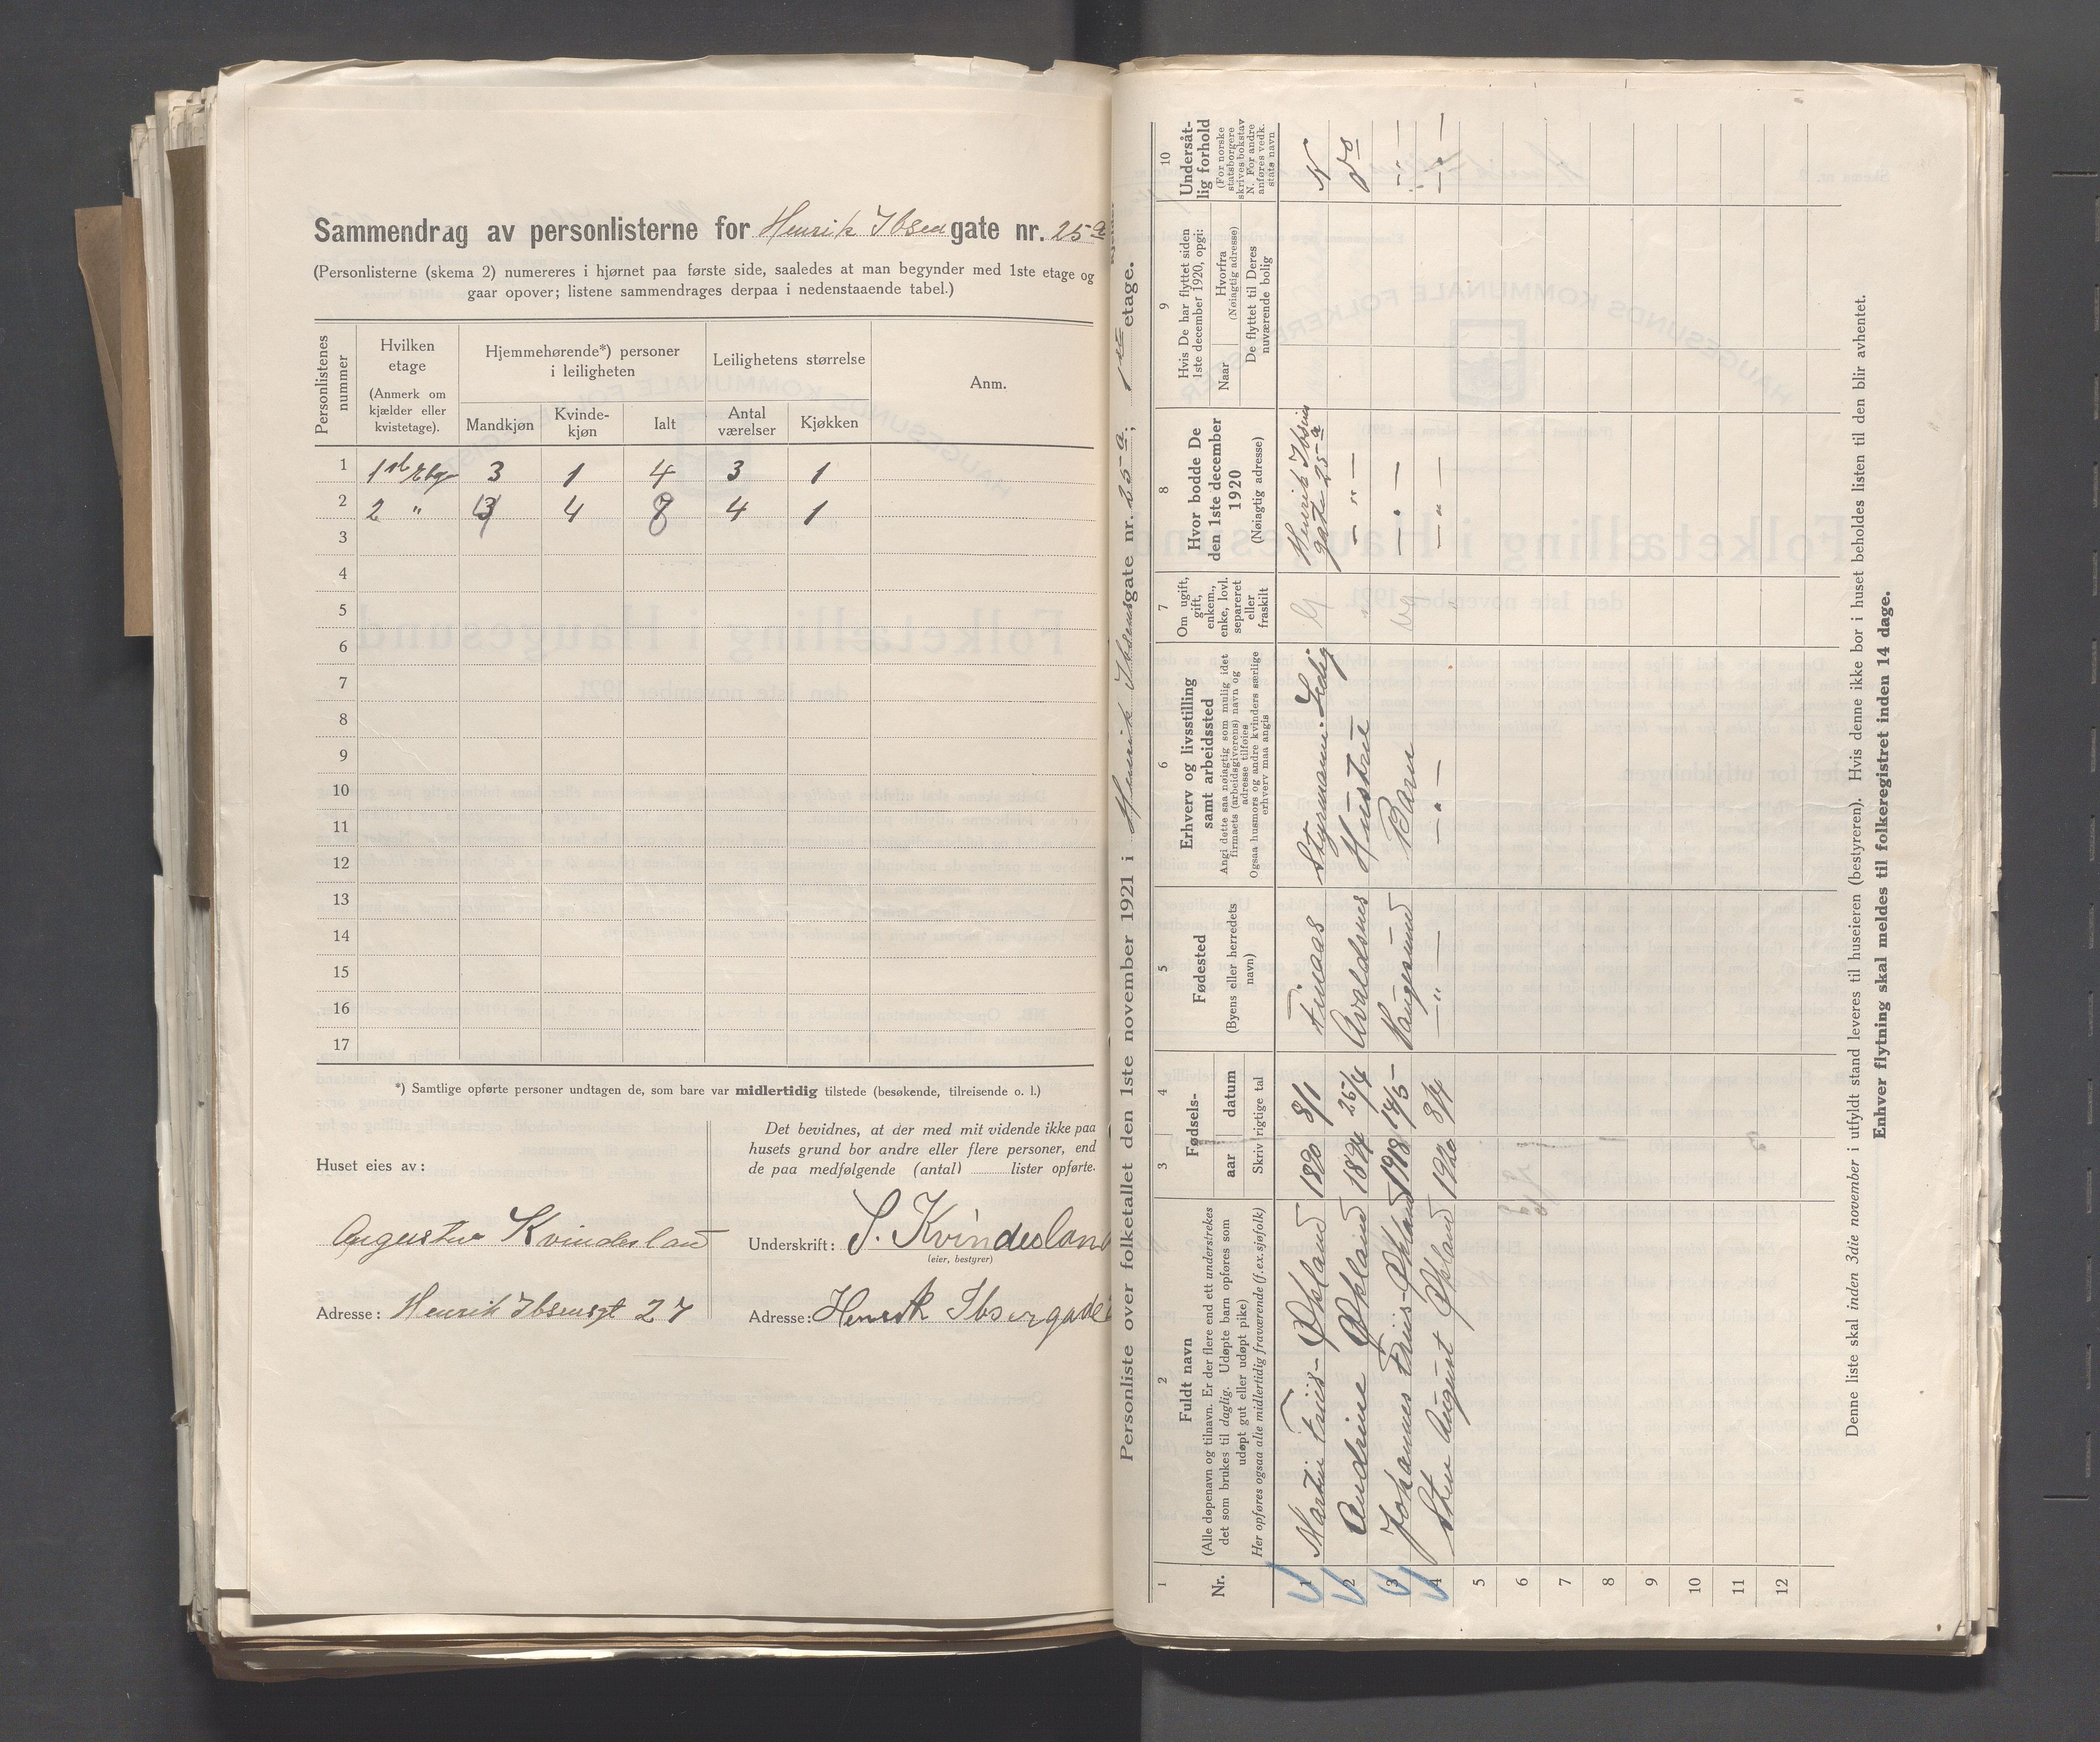 Sammendrag av personlisterne for Henrik Ibsen gate nr. 25 a
(Personlisterne (skema 2) numereres i hjørnet paa første side, saaledes at man begynder med 1ste etage og
gaar opover; listene sammendrages derpaa i nedenstaaende tabel.)
Personlistenes nummer
Hvilken etage
(Anmerk om kjælder eller kvistetage).
Hjemmehørende*) personer i leiligheten
Mandkjøn
Kvinde-kjøn
Ialt
Leilighetens størrelse
Antal værelser
Kjøkken
Anm.
1 1ste Etg 3 1 4 3 1
2 2 " 4 8 4 1
3
4
5
6
7
8
9
10
11
12
13
14
15
16
17
*) Samtlige opførte personer undtagen de, som bare var midlertidig tilstede (besøkende, tilreisende o. l.)
Huset eies av:
Augusta Kvindesland
Adresse: Henrik Ibsensgt 27
Det bevidnes, at der med mit vidende ikke paa
husets grund bor andre eller flere personer, end
de paa medfølgende (antal) lister opførte.
Underskrift: S. Kvindesland
(eier, bestyrer)
Adresse: Henrik Ibsengade
Personliste over folketallet den 1ste november 1921 i Henrik Ibsens gate nr. 25 a; 1ste etage.
1
Nr.
2
Fuldt navn
(Alle døpenavn og tilnavn. Er der flere end ett understrekes
det som brukes til daglig. Udøpte barn opføres som
udøpt gut eller udøpt pike)
Her opføres ogsaa alle midlertidig fraværende (f.ex. sjøfolk)
3 4
Fødsels-
aar datum
Skriv rigtige tal
5
Fødested
(Byens eller herredets navn)
6
Erhverv og livsstilling
samt arbeidssted
Angi dette saa nøiagtig som mulig idet
firmaets (arbeidsgiverens) navn og
adresse tilføies
Ogsaa husmors og andre kvinders særlige
erhverv maa angis
7
Om ugift, gift, enkem., enke, lovl. separeret eller fraskilt
8
Hvor bodde De
den 1ste december
1920
(Nøiagtig adresse)
9
Hvis De har flyttet siden
1ste december 1920, opgi:
Naar
Hvorfra
(Nøiagtig adresse)
De flyttet til Deres
nuværende bolig
10
Undersåt-
lig forhold
(For norske
statsborgere
skrives bokstav
N. For andre
anføres vedk.
stats navn
1 Martin Friis-Økland 1890 8/1 Timaas Styrmann. Ledig G Henrik Ibsens gate 25 a N
2 Andrine Økland 1894 25/4 Avaldsnes Hustru " — " — do
3 Johannes Friis-Økland 1918 14/5 Haugesund Barn — " — — " —
4 Sten August Økland 1920 3/4 — " — — " — — " — — " —
5
6
7
8
9
10
11
12
Denne liste skal inden 3die november i utfyldt stand leveres til huseieren (bestyreren). Hvis denne ikke bor i huset beholdes listen til den blir avhentet.
Enhver flytning skal meldes til folkeregistret inden 14 dage.